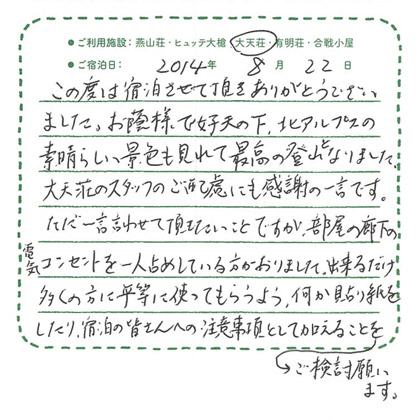 ●ご利用施設：燕山荘・ヒュッテ大槍・大天荘・有明荘・合戦小屋
●ご宿泊日： 2014年 8月 22日
この度は宿泊させて頂きありがとうござい
ました。お蔭様で好天の下、北アルプスの
素晴らしい景色も見れて最高の登山となりました。
大天荘のスタッフのご配慮にも感謝の一言です。
ただ一言言わせて頂きたいことですが、部屋の廊下の
電気コンセントを一人占めしている方がおりました。出来るだけ
多くの方に平等に使ってもらうよう、何か貼り紙を
したり、宿泊の皆さんへの注意事項として加えることを
ご検討願い
ます。